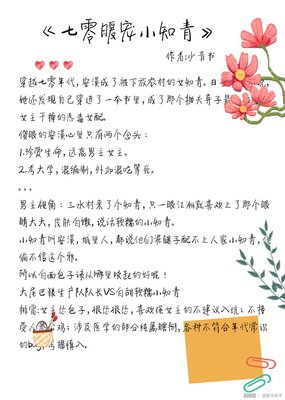 《七零暖宠小知青》
作者:沙音书
穿越七零年代,安漠成了被下放农村的女知青。日
她还发现自己穿进了一本书里,成了那个抛夫弃子
女主干掉的恶毒女配。
傻眼的安漠心里只有两个念头:
1.珍爱生命,远离男主女主。
2.考大学,混编制,外加混吃等死。
...
男主视角:三水村来了个知青,只一眼江湘就喜欢上了那个眼
睛大大,皮肤白嫩,说话软糯的小知青。
小知青叫安漠,城里人,都说他们泥腿子配不上人家小知青,
偏不信这个邪。
所以白面包子该从哪里咬起的好呢!
大尾巴狼生产队队长VS白甜软糯小知青
排雷:女主包子,很怂很怂,喜欢强女主的不建议入坑;不接
受人 公鸡;涉及医学的部分纯属瞎掰,各种不符合年代常识
的bug,考据慎入。